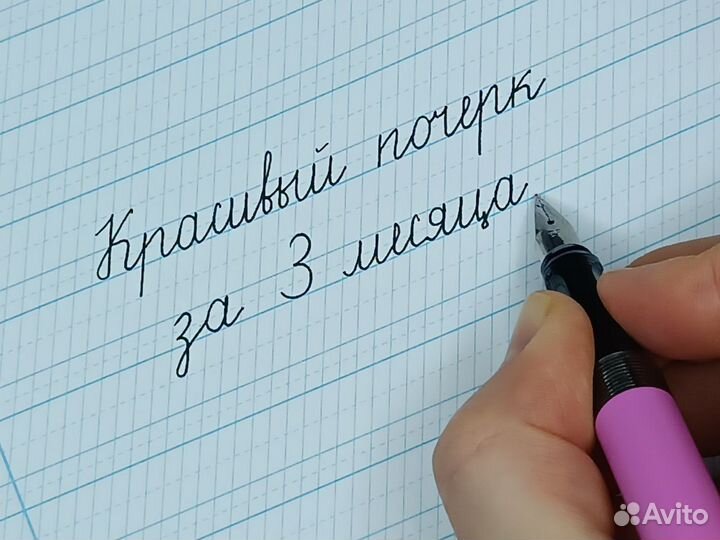 Красивый почерк
за 3 месяца
Avito